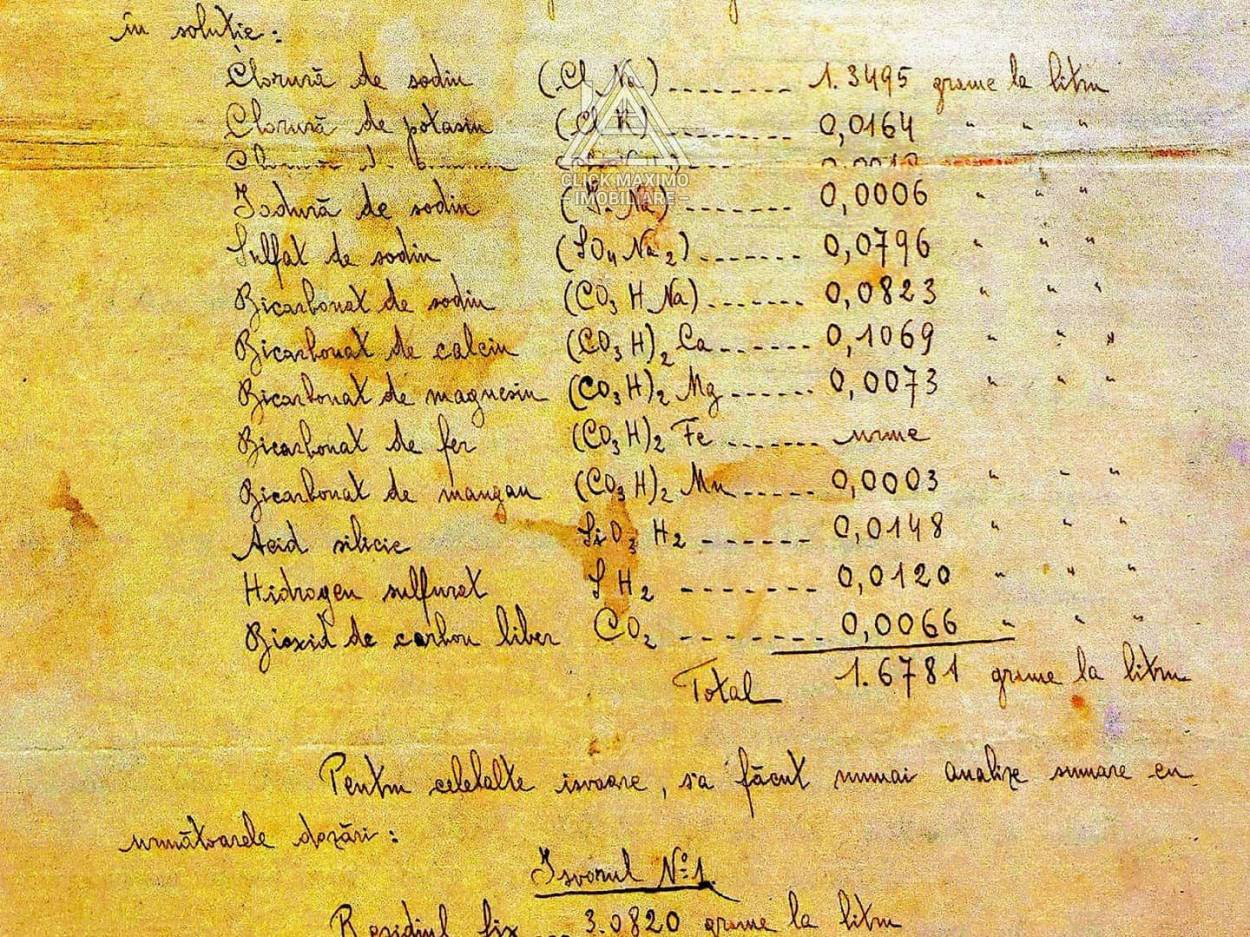 în soluție:
Clorură de sodiu (Cl Na) ........ 1.3495 grame la litru
Clorură de potasiu (Cl K) ........ 0,0164 " " "
Clorură de
Iodură de sodiu (I. Na) ........ 0,0006 " " "
Sulfat de sodiu (SO4 Na2) ....... 0,0796 " " "
Bicarbonat de sodiu (CO3 H Na) ....... 0,0823 " " "
Bicarbonat de calciu (CO3 H)2 Ca ....... 0,1069 " " "
Bicarbonat de magnesiu (CO3 H)2 Mg ...... 0,0073 " " "
Bicarbonat de fer (CO3 H)2 Fe ....... urme
Bicarbonat de mangan (CO3 H)2 Mn ...... 0,0003 " " "
Acid silicic SiO3 H2 ....... 0,0148 " " "
Hidrogen sulfurat S H2 ........ 0,0120 " " "
Bioxid de carbon liber CO2 ........ 0,0066 " " "
Total 1.6781 grame la litru
Pentru celelalte isvoare, s'a făcut numai analize sumare cu
următoarele dozări:
Isvorul No 1.
Residiul fix ... 3.0820 grame la litru
CLICK MAXIMO
- IMOBILIARE -